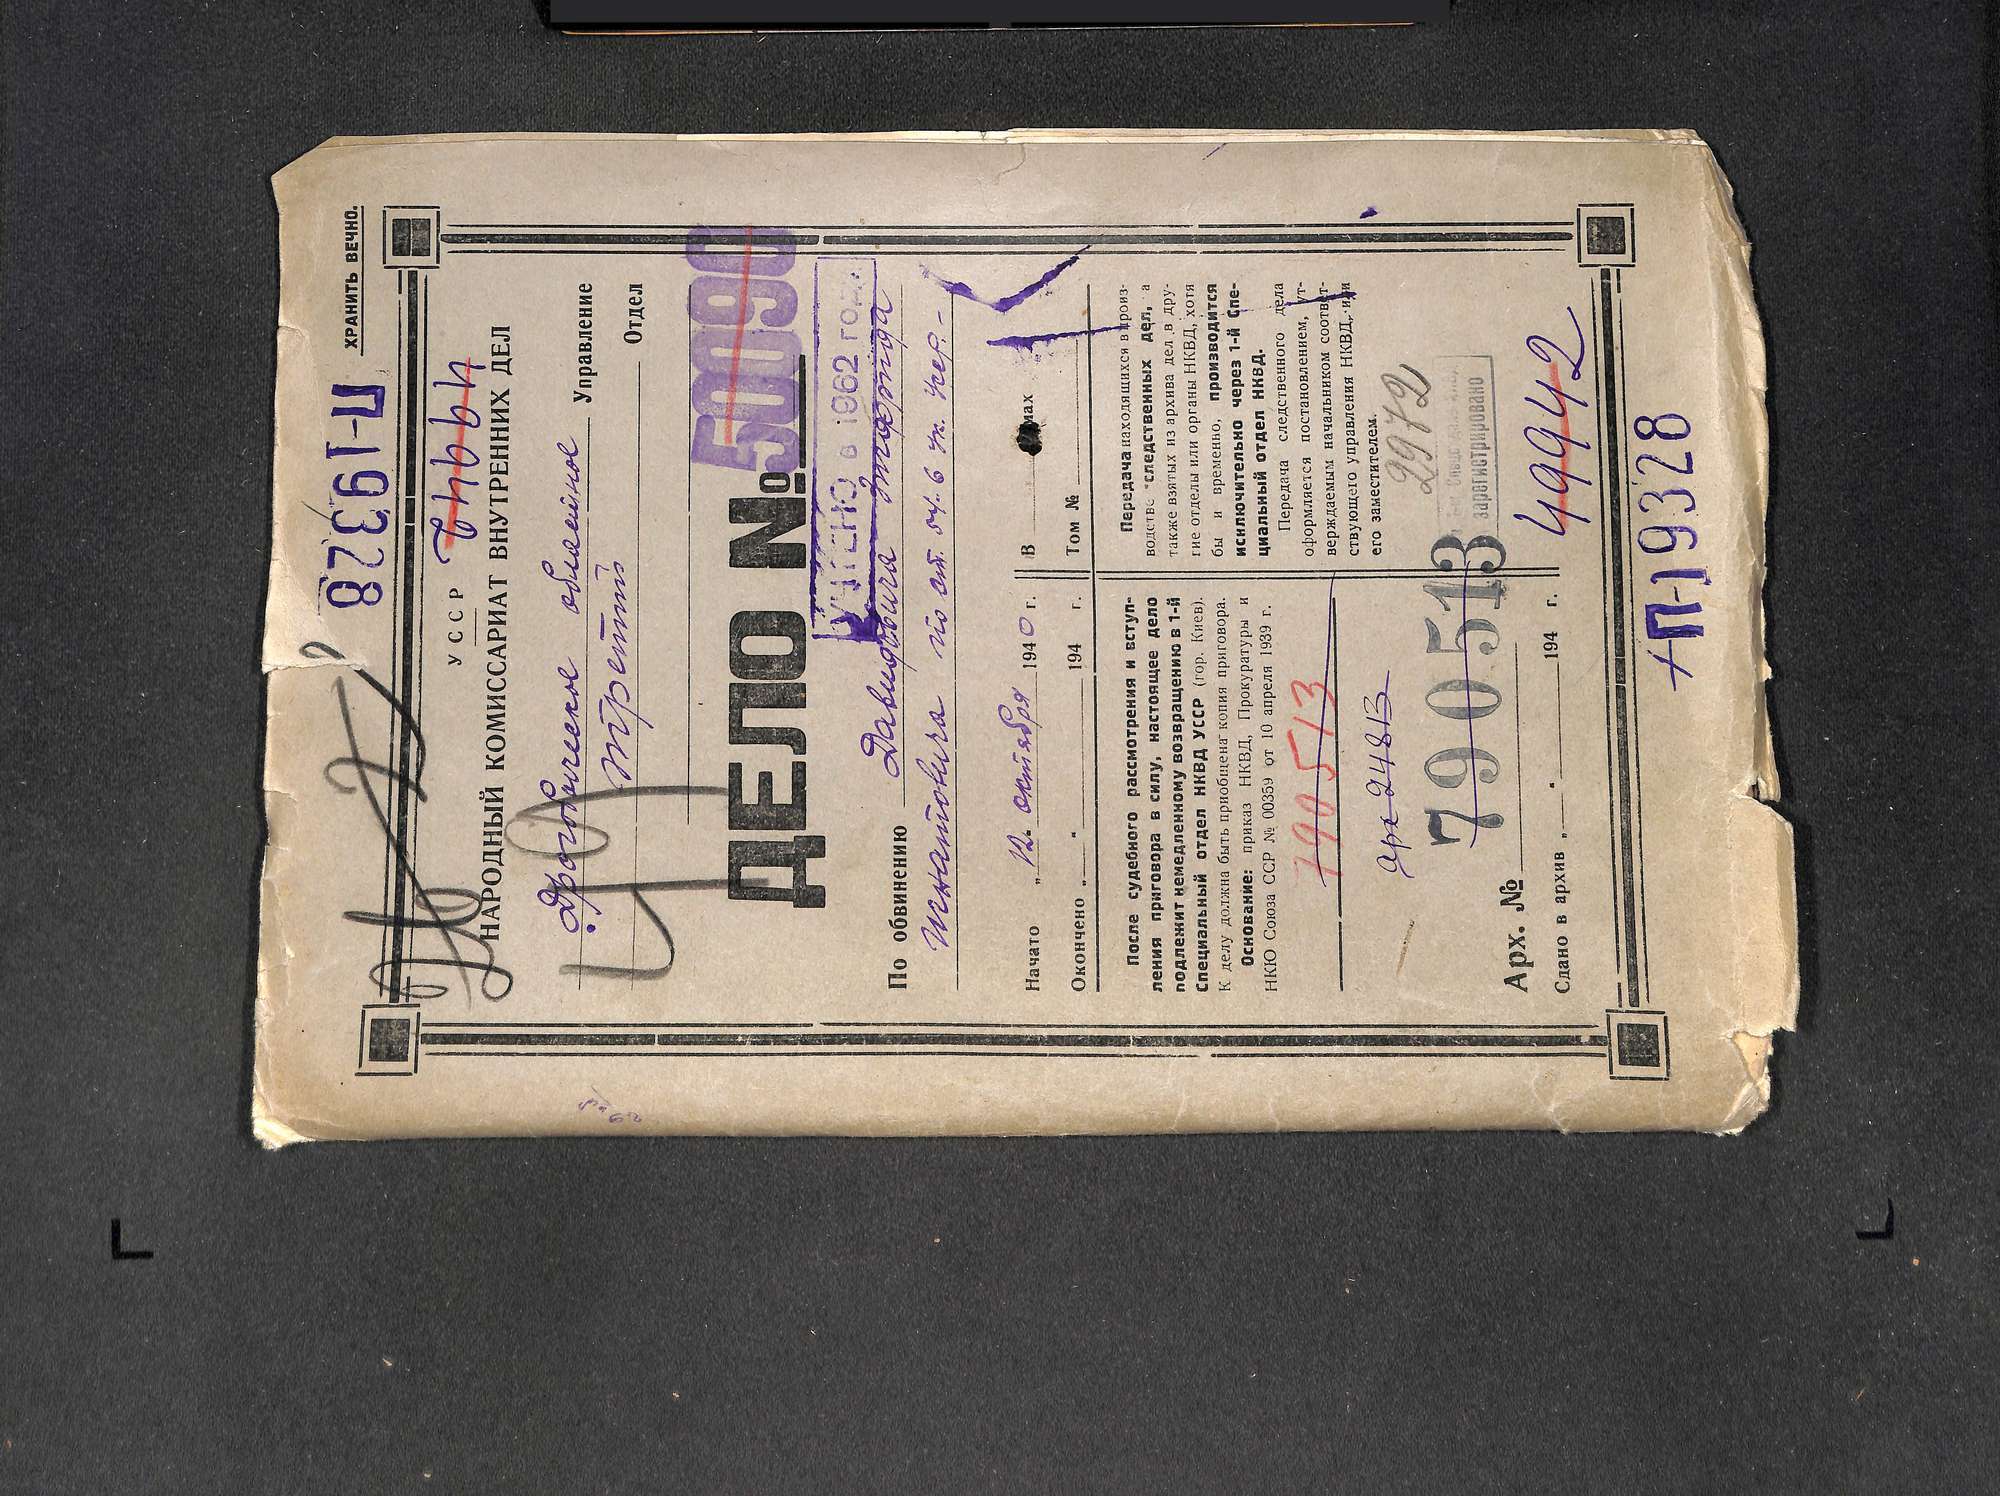 ХРАНИТЬ ВЕЧНО.
П-19328
УССР
НАРОДНЫЙ КОМИССАРИАТ ВНУТРЕННИХ ДЕЛ
Дрогобичское областное Управление
третий Отдел
ДЕЛО №
50090
УЧТЕНО в 1962 году
По обвинению Давидовича
Игнатовича по ст. 54-6 ук. Усср.-
Начато „12“ октября 1940 г.
Окончено „ “ 194 г.
В мах
Том №
После судебного рассмотрения и вступ-
ления приговора в силу, настоящее дело
подлежит немедленному возвращению в 1-й
Специальный отдел НКВД УССР (гор. Киев).
К делу должна быть приобщена копия приговора.
Основание: приказ НКВД, Прокуратуры и
НКЮ Союза ССР № 00359 от 10 апреля 1939 г.
Передача находящихся в произ-
водстве следственных дел, а
также взятых из архива дел в дру-
гие отделы или органы НКВД, хотя
бы и временно, производится
исключительно через 1-й Спе-
циальный отдел НКВД.
Передача следственного дела
оформляется постановлением, ут-
верждаемым начальником соответ-
ствующего управления НКВД, или
его заместителем.
790513
арх 248В
2972
зарегистрировано
790513
49942
Арх. №
Сдано в архив „ “ 194 г.
П-19328